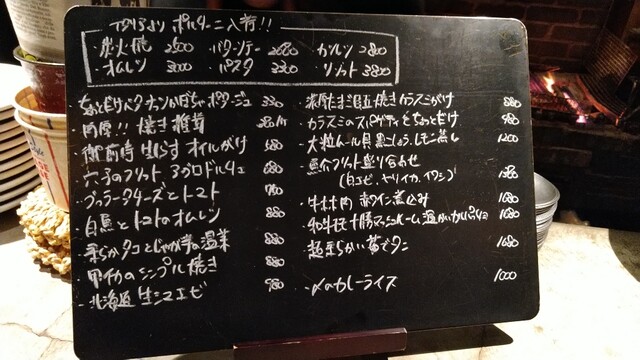 イタリアより ポルチーニ入荷!!
・炭火焼 2500 ・バターソテー 2680 ・ガルソ 2800
・オムレツ 3000 ・パスタ 3200 ・リゾット 3800
ちょっとだけバターナッツかぼちゃポタージュ 330
・肉厚!! 焼き椎茸
・御前崎 生しらす オイルがけ 680
・穴子のフリット アグロドルチェ 680
・ブッラータチーズとトマト 780
・白魚とトマトのオムレツ 880
・柔らかタコとじゃが芋の温菜 880
・甲イカのシンプル焼き 880
・北海道 生シマエビ 980
・米原たまご目玉焼き カラスミがけ 880
・カラスミのスパゲティをちょっとだけ 980
・大粒ムール貝 黒こしょう、レモン蒸し 1200
・魚介フリット盛り合わせ
(白エビ、ヤリイカ、イワシ) 1380
・牛ホホ肉 赤ワイン煮込み 1680
・和牛モモと十勝マッシュルーム 温かいカルパッチョ 1680
・超柔らかい 1680
・〆のカレーライス 1000